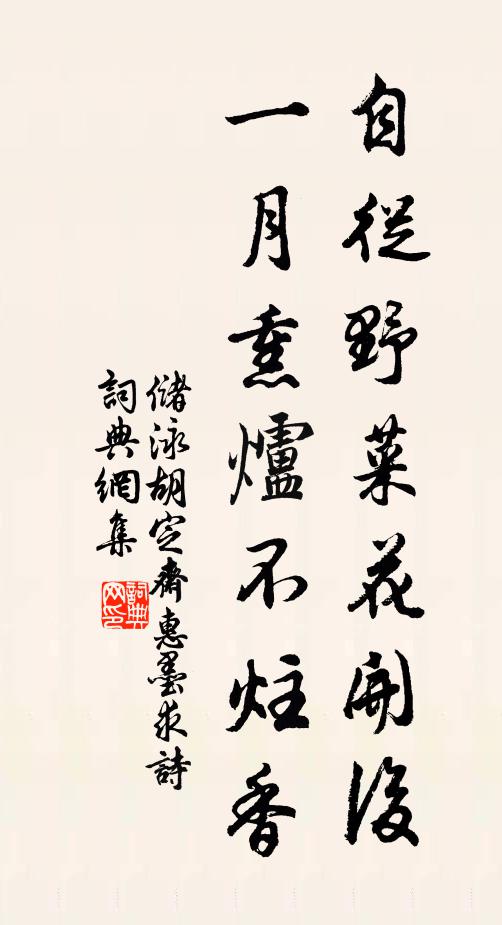 自從野菜花開後
一月熏爐不炷香
儲泳胡定齋惠墨求詩
詞典網集
詞典
网印